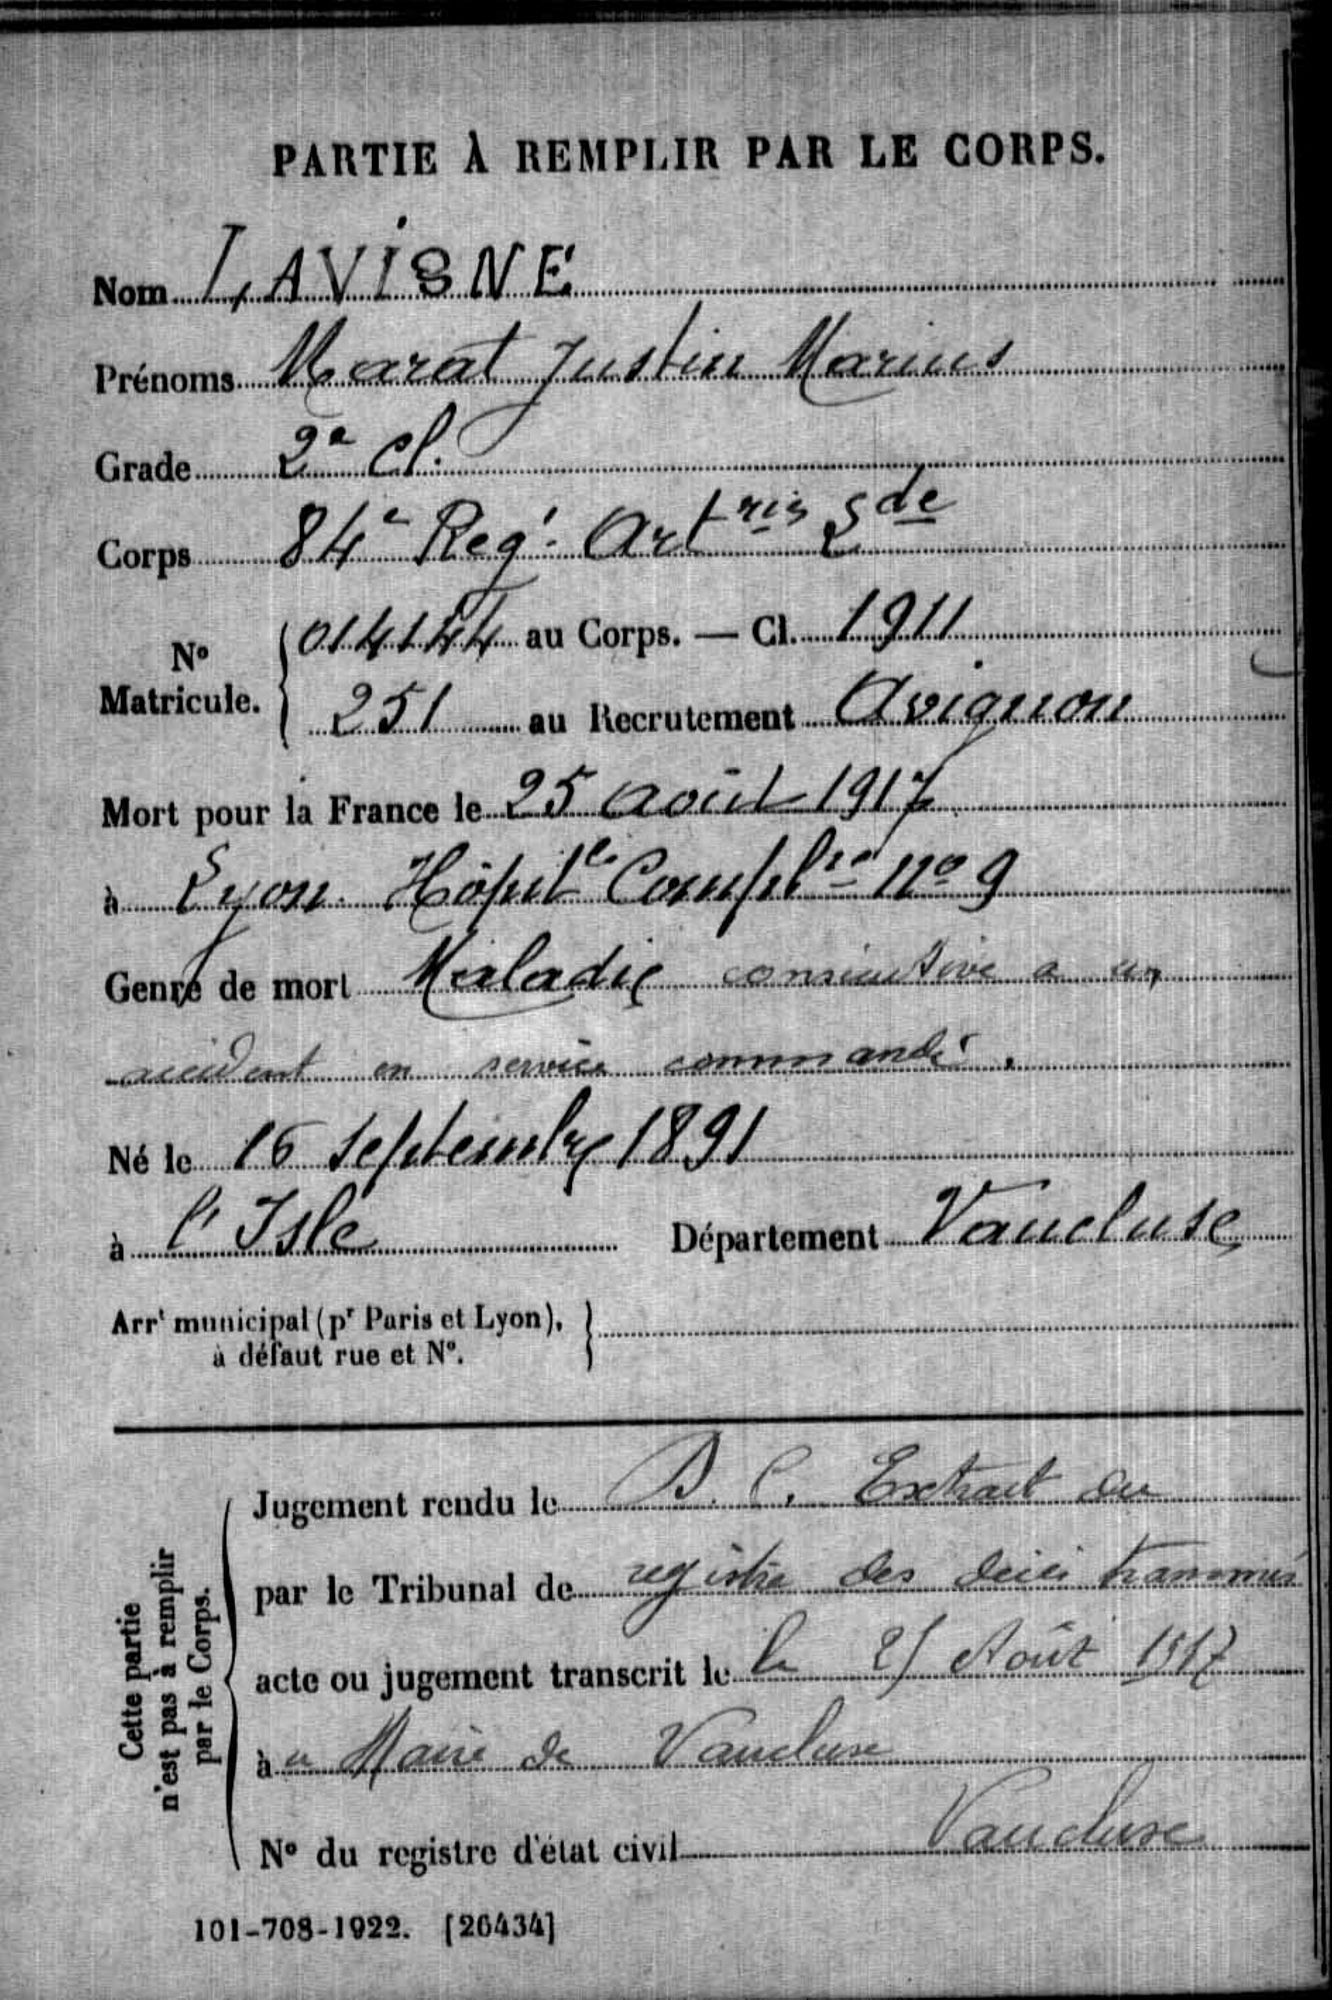 PARTIE À REMPLIR PAR LE CORPS.
Nom LAVIGNE
Prénoms Marat Justin Marius
Grade 2e Cl.
Corps 84e Regt. Artrie Lde
No Matricule. 014144 au Corps. — Cl. 1911
251 au Recrutement Avignon
Mort pour la France le 25 août 1917
à Lyon. Hôpitl Complre no 9
Genre de mort Maladie consécutive a un
accident en service commandé.
Né le 16 Septembre 1891
à l'Isle Département Vaucluse
Arrt municipal (pr Paris et Lyon),
à défaut rue et No.
Cette partie
n'est pas à remplir
par le Corps.
Jugement rendu le D. C. Extrait du
par le Tribunal de registre des décès transmis
acte ou jugement transcrit le le 25 Août 1917
à Maire de Vaucluse
No du registre d'état civil Vaucluse
101-708-1922. [26434]